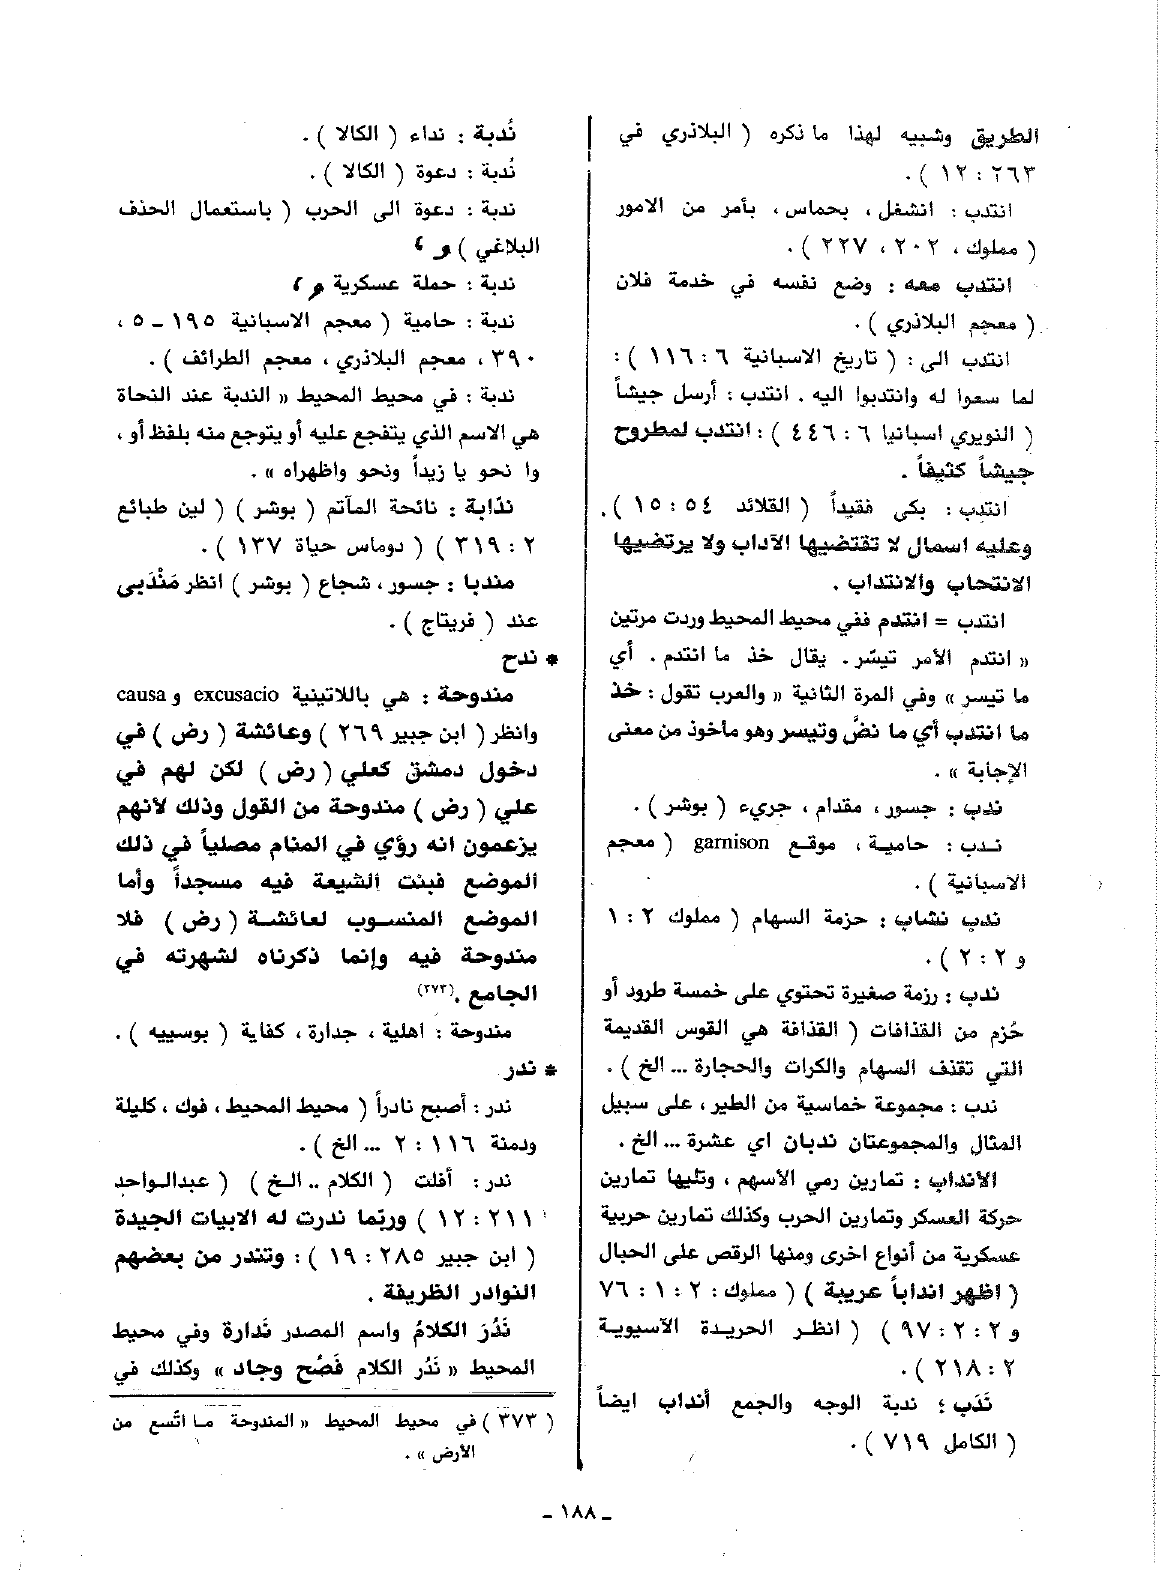 الطريق وشبيه لهذا ما ذكره ( البلاذري في
٢٦٣ : ١٢ ) .
انتدب : انشغل ، بحماس ، بأمر من الامور
( مملوك ، ٢٠٢ ، ٢٢٧ ) .
انتدب معه : وضع نفسه في خدمة فلان
( معجم البلاذري ) .
انتدب الى : ( تاريخ الاسبانية ٦ : ١١٦ ) :
لما سعوا له وانتدبوا اليه . انتدب : أرسل جيشاً
( النويري اسبانيا ٦ : ٤٤٦ ) : انتدب لمطروح
جيشاً كثيفاً .
انتدب : بكى فقيداً ( القلائد ٥٤ : ١٥ ) .
وعليه اسمال لا تقتضيها الآداب ولا يرتضيها
الانتحاب والانتداب .
انتدب = انتدم ففي محيط المحيط وردت مرتين
« انتدم الأمر تيسّر . يقال خذ ما انتدم . أي
ما تيسر » وفي المرة الثانية « والعرب تقول : خذ
ما انتدب أي ما نضّ وتيسر وهو مأخوذ من معنى
الإجابة » .
ندب : جسور ، مقدام ، جريء ( بوشر ) .
ندب : حامية ، موقع garnison ( معجم
الاسبانية ) .
ندب نشاب : حزمة السهام ( مملوك ٢ : ١
و ٢ : ٢ ) .
ندب : رزمة صغيرة تحتوي على خمسة طرود أو
حُزم من القذافات ( القذافة هي القوس القديمة
التي تقذف السهام والكرات والحجارة ... الخ ) .
ندب : مجموعة خماسية من الطير ، على سبيل
المثال والمجموعتان ندبان اي عشرة ... الخ .
الأنداب : تمارين رمي الأسهم ، وتليها تمارين
حركة العسكر وتمارين الحرب وكذلك تمارين حربية
عسكرية من أنواع اخرى ومنها الرقص على الحبال
( اظهر انداباً عريبة ) ( مملوك : ٢ : ١ : ٧٦
و ٢ : ٢ : ٩٧ ) ( انظر الحريدة الآسيوية
٢ : ٢١٨ ) .
نَدَب ؛ ندبة الوجه والجمع أنداب ايضاً
( الكامل ٧١٩ ) .
نُدبة : نداء ( الكالا ) .
نُدبة : دعوة ( الكالا ) .
ندبة : دعوة الى الحرب ( باستعمال الحذف
البلاغي ) و ،
ندبة : حملة عسكرية و ،
ندبة : حامية ( معجم الاسبانية ١٩٥ - ٥ ،
٣٩٠ ، معجم البلاذري ، معجم الطرائف ) .
ندبة : في محيط المحيط « الندبة عند النحاة
هي الاسم الذي يتفجع عليه أو يتوجع منه بلفظ أو ،
وا نحو يا زيداً ونحو واظهراه » .
ندّابة : نائحة المآتم ( بوشر ) ( لين طبائع
٢ : ٣١٩ ) ( دوماس حياة ١٣٧ ) .
مندبا : جسور ، شجاع ( بوشر ) انظر مَنْدَبى
عند ( فريتاج ) .
* ندح
مندوحة : هي باللاتينية excusacio و causa
وانظر ( ابن جبير ٢٦٩ ) وعائشة ( رض ) في
دخول دمشق كعلي ( رض ) لكن لهم في
علي ( رض ) مندوحة من القول وذلك لأنهم
يزعمون انه رؤي في المنام مصلياً في ذلك
الموضع فبنت الشيعة فيه مسجداً وأما
الموضع المنسوب لعائشة ( رض ) فلا
مندوحة فيه وإنما ذكرناه لشهرته في
الجامع .(٣٧٣)
مندوحة : اهلية ، جدارة ، كفاية ( بوسييه ) .
* ندر
ندر : أصبح نادراً ( محيط المحيط ، فوك ، كليلة
ودمنة ١١٦ : ٢ ... الخ ) .
ندر : أفلت ( الكلام .. الخ ) ( عبدالواحد
٢١١ : ١٢ ) وربما ندرت له الابيات الجيدة
( ابن جبير ٢٨٥ : ١٩ ) : وتندر من بعضهم
النوادر الظريفة .
نَدُرَ الكلامُ واسم المصدر نَدارة وفي محيط
المحيط « نَدُر الكلام فَصُح وجاد » وكذلك في
( ٣٧٣ ) في محيط المحيط « المندوحة ما اتّسع من
الأرض » .
ـ ١٨٨ ـ